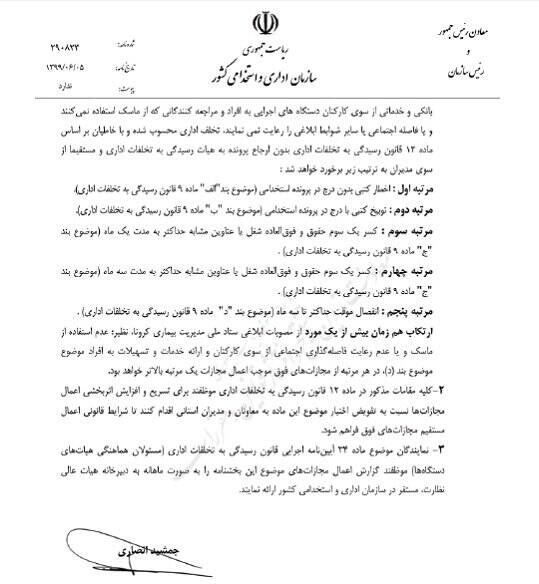 ریاست جمهوری
سازمان اداری و استخدامی کشور
معاون رئیس جمهور
و
رئیس سازمان
شماره نامه: ۲۹۰۸۳۳
تاریخ نامه: ۱۳۹۹/۰۶/۰۵
پیوست: ندارد
بانکی و خدماتی از سوی کارکنان دستگاه های اجرایی به افراد و مراجعه کنندگانی که از ماسک استفاده نمی‌کنند
و یا فاصله اجتماعی یا سایر شوابط ابلاغی را رعایت نمی نمایند، تخلف اداری محسوب شده و با خاطیان بر اساس
ماده ۱۲ قانون رسیدگی به تخلفات اداری بدون ارجاع پرونده به هیات رسیدگی به تخلفات اداری و مستقیما از
سوی مدیران به ترتیب زیر برخورد خواهد شد :
مرتبه اول : اخطار کتبی بدون درج در پرونده استخدامی (موضوع بند"الف" ماده ۹ قانون رسیدگی به تخلفات اداری).
مرتبه دوم : توبیخ کتبی با درج در پرونده استخدامی (موضوع بند "ب" ماده ۹ قانون رسیدگی به تخلفات اداری).
مرتبه سوم : کسر یک سوم حقوق و فوق‌العاده شغل یا عناوین مشابه حداکثر به مدت یک ماه (موضوع بند
"ج" ماده ۹ قانون رسیدگی به تخلفات اداری) .
مرتبه چهارم : کسر یک سوم حقوق و فوق‌العاده شغل یا عناوین مشابه حداکثر به مدت سه ماه (موضوع بند
"ج" ماده ۹ قانون رسیدگی به تخلفات اداری) .
مرتبه پنجم : انفصال موقت حداکثر تا سه ماه (موضوع بند "د" ماده ۹ قانون رسیدگی به تخلفات اداری) .
ارتکاب هم زمان بیش از یک مورد از مصوبات ابلاغی ستاد ملی مدیریت بیماری کرونا، نظیر؛ عدم استفاده از
ماسک و یا عدم رعایت فاصله‌گذاری اجتماعی از سوی کارکنان و ارائه خدمات و تسهیلات به افراد موضوع
موضوع بند (د)، در هر مرتبه از مجازات‌های فوق موجب اعمال مجازات یک مرتبه بالاتر خواهد بود.
۲-کلیه مقامات مذکور در ماده ۱۲ قانون رسیدگی به تخلفات اداری موظفند برای تسریع و افزایش اثربخشی اعمال
مجازات‌ها نسبت به تفویض اختیار موضوع این ماده به معاونان و مدیران استانی اقدام کنند تا شرایط قانونی اعمال
مستقیم مجازات‌های فوق فراهم شود.
۳- نمایندگان موضوع ماده ۳۴ آیین‌نامه اجرایی قانون رسیدگی به تخلفات اداری (مسئولان هماهنگی هیات‌های
دستگاه‌ها) موظفند گزارش اعمال مجازات‌های موضوع این بخشنامه را به صورت ماهانه به دبیرخانه هیات عالی
نظارت، مستقر در سازمان اداری و استخدامی کشور ارائه نمایند.
جمشید انصاری